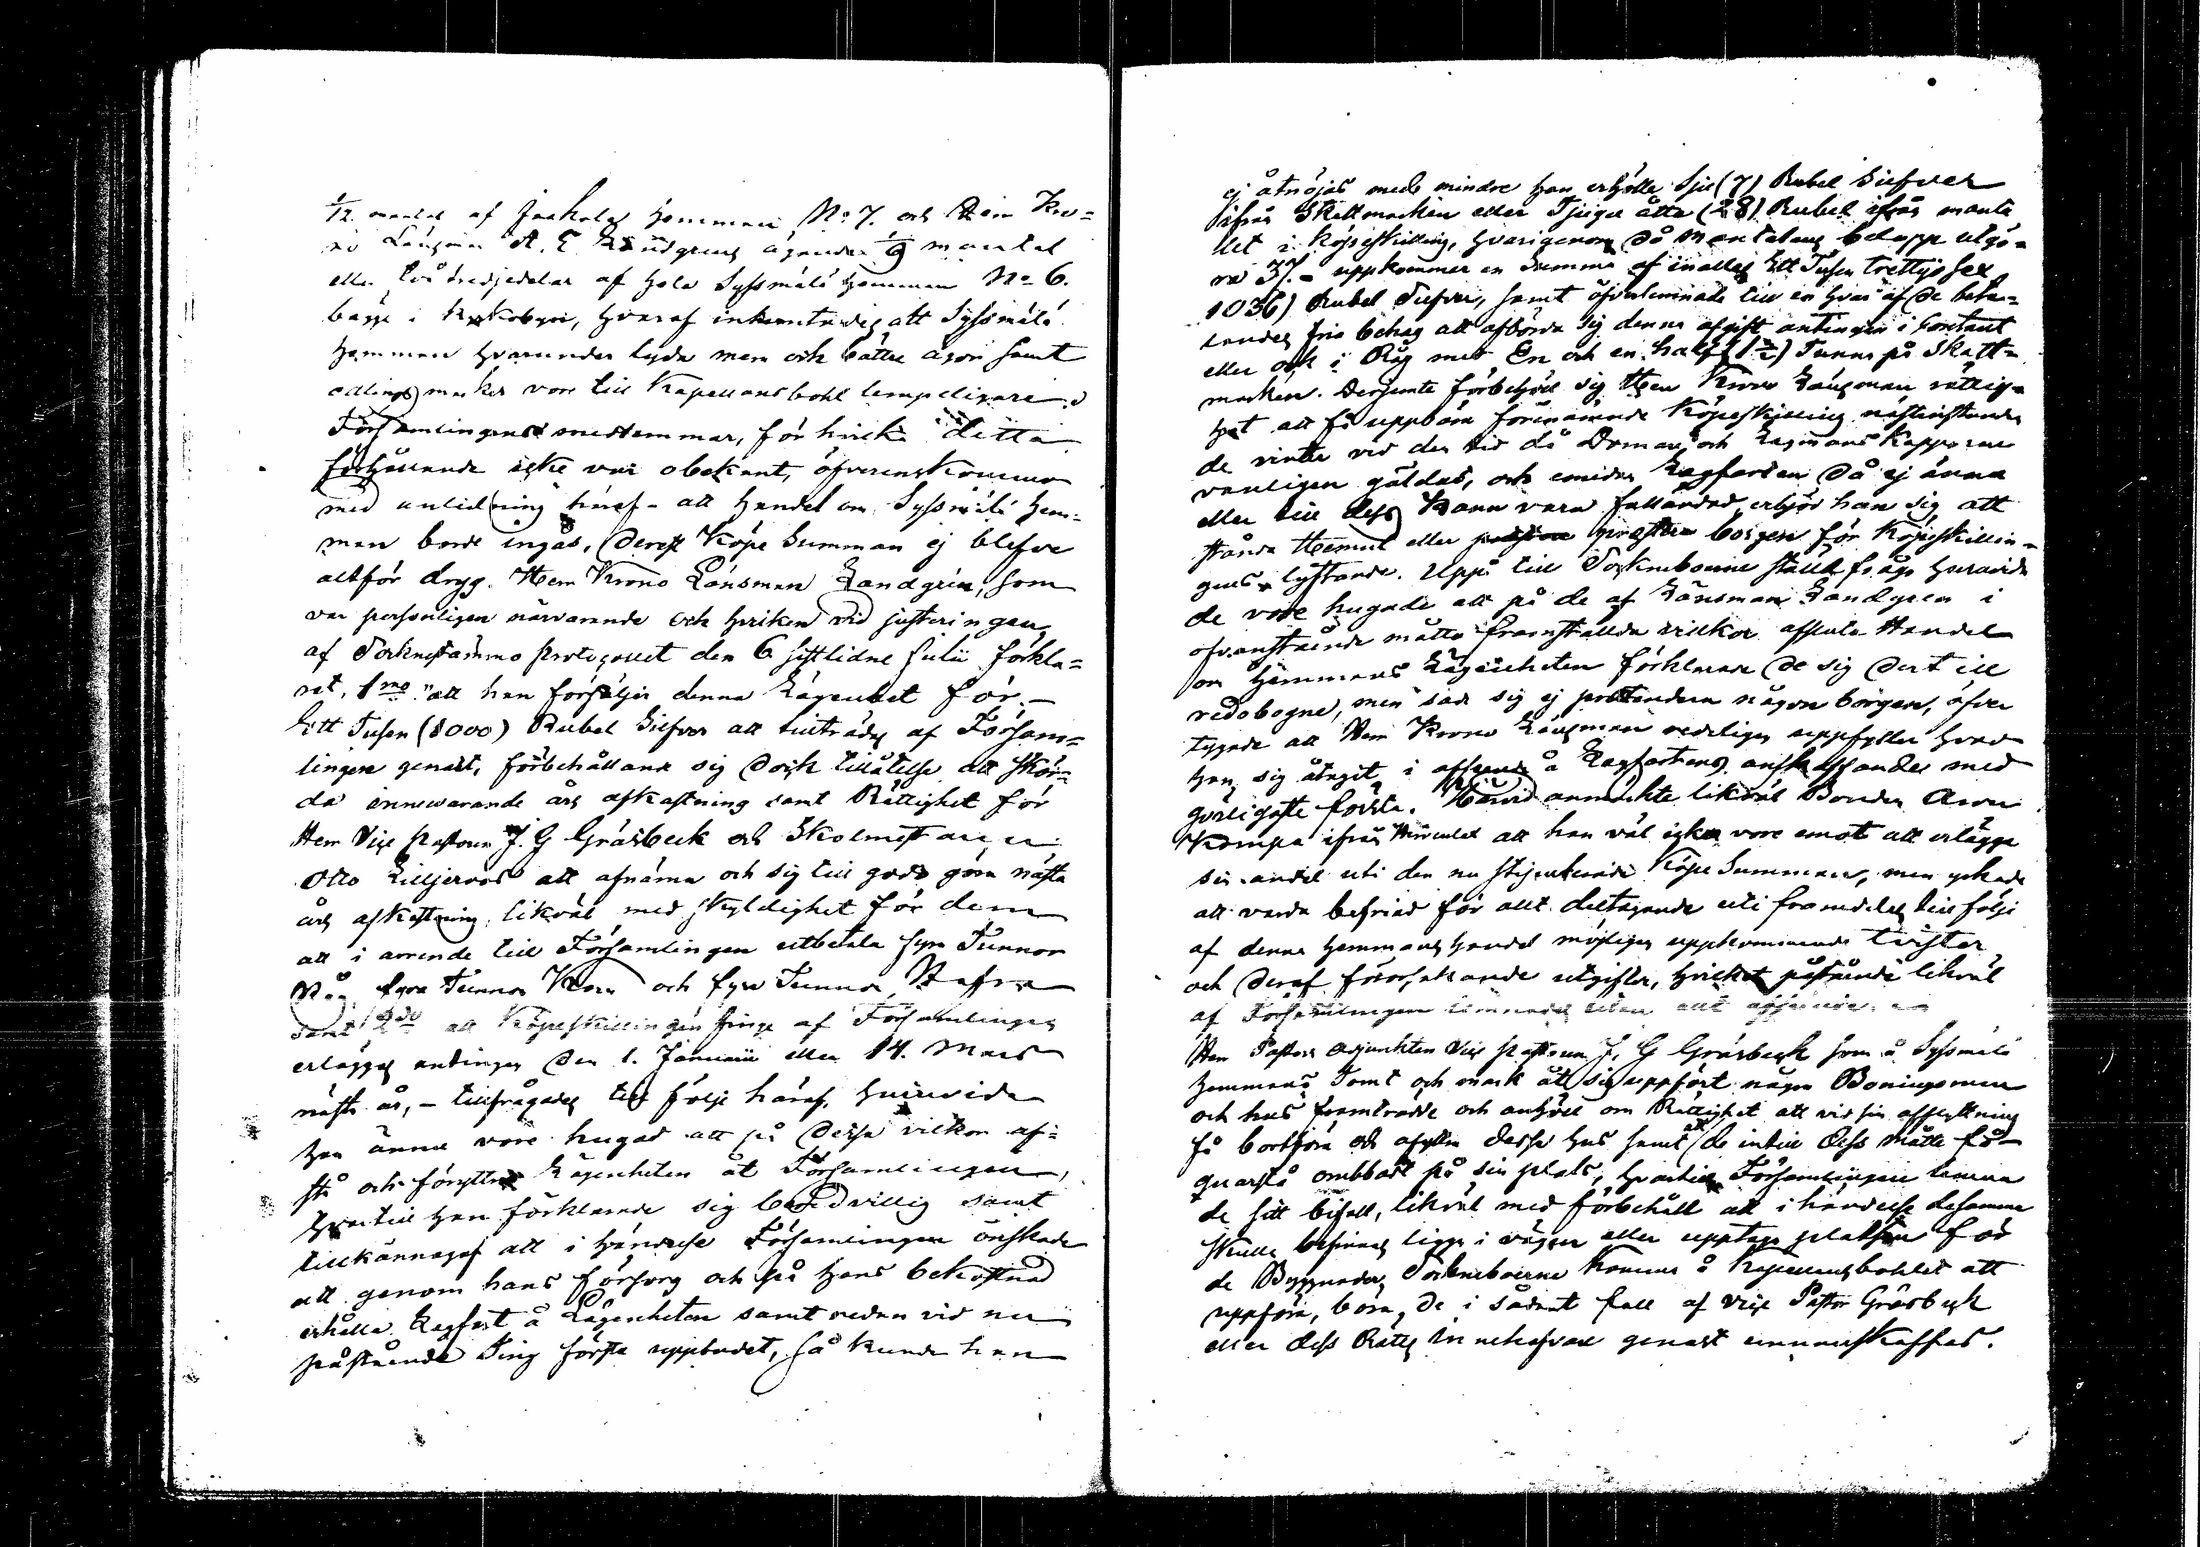 1/12 mantal af Jaakola Hemman No 7. och Herr Kro-
no Länsman A. E. Landgrens ägande 1/9 mantal
eller två tredjedelar af hela Syssmälä Hemman No 6.
bägge i Kyrkobyn, hvaraf inhemtades att Syssmälä
Hemman hvarunder lyda mera och bättre ägor samt
odlings marker vore till Kapellansbohl lempeligare.
Församlingens medlemmar, för hvilka detta
förhållande icke var obekant, öfverenskommo
med anledning häraf - att Handel om Syssmälä Hem-
man borde ingås, derest Köpe Summan ej blefve
altför dryg. Herr Krono Länsman Landgrén, som
var personligen närvarande och hvilken vid justeringen
af Sockenstämmo Protocollet den 6 sistlidne Julii förkla-
rat, 1mo att han försäljer denna Lägenhet för -
Ett Tusen (1000) Rubel Silfver att tillträdas af Försam-
lingen genast, förbehållande sig dock tillåtelse att skör-
da innewarande års afkastning samt Rättighet för
Herr Vice Pastorn J. G Gråsbeck och Skolmästaren
Otto Lilljeroos att afnäma och sig till godo göra nästa
års afkastning, likväl med skyldighet för dem
att i arrende till Församlingen utbetala fyra Tunnor
Råg fyra Tunnor Korn och fyra Tunnor Hafra
samt 2do att Köpeskillingen finge af Församlingen
erläggas antingen den 1. Januarii eller 14. Mars
nästa år, - tillfrågades till följe häraf, huruvida
han ännu vore hugad att på dessa vilkor af-
stå och förytra Lägenheten åt Församlingen,
hvartill han förklarade sig beredvillig samt
tillkännagaf att i händelse Församlingen önskade
att genom hans försorg och på hans bekostnad
erhålla Lagfart å Lägenheten samt redan vid nu
påstående Ting första uppbudet, så kunde han
ej åtnöjas med mindre han erhölle Sju (7) Rubel Silfver
ifrån Skattmarken eller Tjugu åtta (28) Rubel ifrån manta
let i Köpeskilling, hvarigenom då Mantalens belopp utgö-
ra 37. - uppkommer en Summa af inalles Ett Tusen trettijosex
1036) Rubel Silfver, samt öfverlemnade till en hvar af de beta-
landes fria behag att afbörda sig denna afgift antingen i Contant
eller ock i Råg med En och en half (1 1/2) Tunna på Skatt-
marken. Dessemte förbehöll sig Herr Krono Länsman rättig-
het att få uppbära förenämnde Köpeskilling nästinstundan
de vinter vid den tid då Domars och Lagmans Kapporna
vanligen gäldas, och emedan Lagfarten då ej ännu
eller till dess kan vara fulländad erbjöd han sig att
stånda Hemul eller prestera borgen för Köpeskillin-
gens lyftande. Uppå till Socknboerne ställd fråga huruvida
de vore hugade att på de af Länsman Landgren i
ofvanstående måtto framställda vilkor afsluta Handel
om Hemmans Lägenheten förklarade de sig dertill
redobogne, men sade sig ej pretendera någon borgen, öfver
tygade att Herr Krono Länsman redeligen uppfyller hvad
han sig åtagit i afseende å Lagfartens anskaffande med
görligaste första. Härvid anmärkte likväl Bonden Aron
Kompa ifrån att han väl icke vore emot att erlägga
sin andel uti den nu stipulerade Köpe Summan, men yrkade
att varda befriad för allt deltagande uti framdeles till följe
af denna Hemmans handel möjligen uppkommande tvister
och deraf förorsakande utgifter, hvilket påstående likväl
af Församlingen lemnades utan allt afseende.
Herr Pastors Adjunkten Vice Pastorn J. G Gråsbeck som å Syssmälä
Hemmans Tomt och mark åt sig uppfört några Boningsrum
och hus framträdde och anhöll om Rättighet att vid sin afflyttning
få bortföra och afyttra dessa hus samt att de intill dess måtte få
quarstå orubbade på sin plats, hvartill Församlingen lemna
de sitt bifall, likväl med förbehåll att i händelse desamma
skulle befinnas ligga i vägen eller upptaga platsen för
de Byggnader Socknboerne komma å Kapellansbohlet att
uppföra, böra de i sådant fall af Vice Pastor Gråsbeck
eller dess Rätts innehafvare genast undanskaffas.